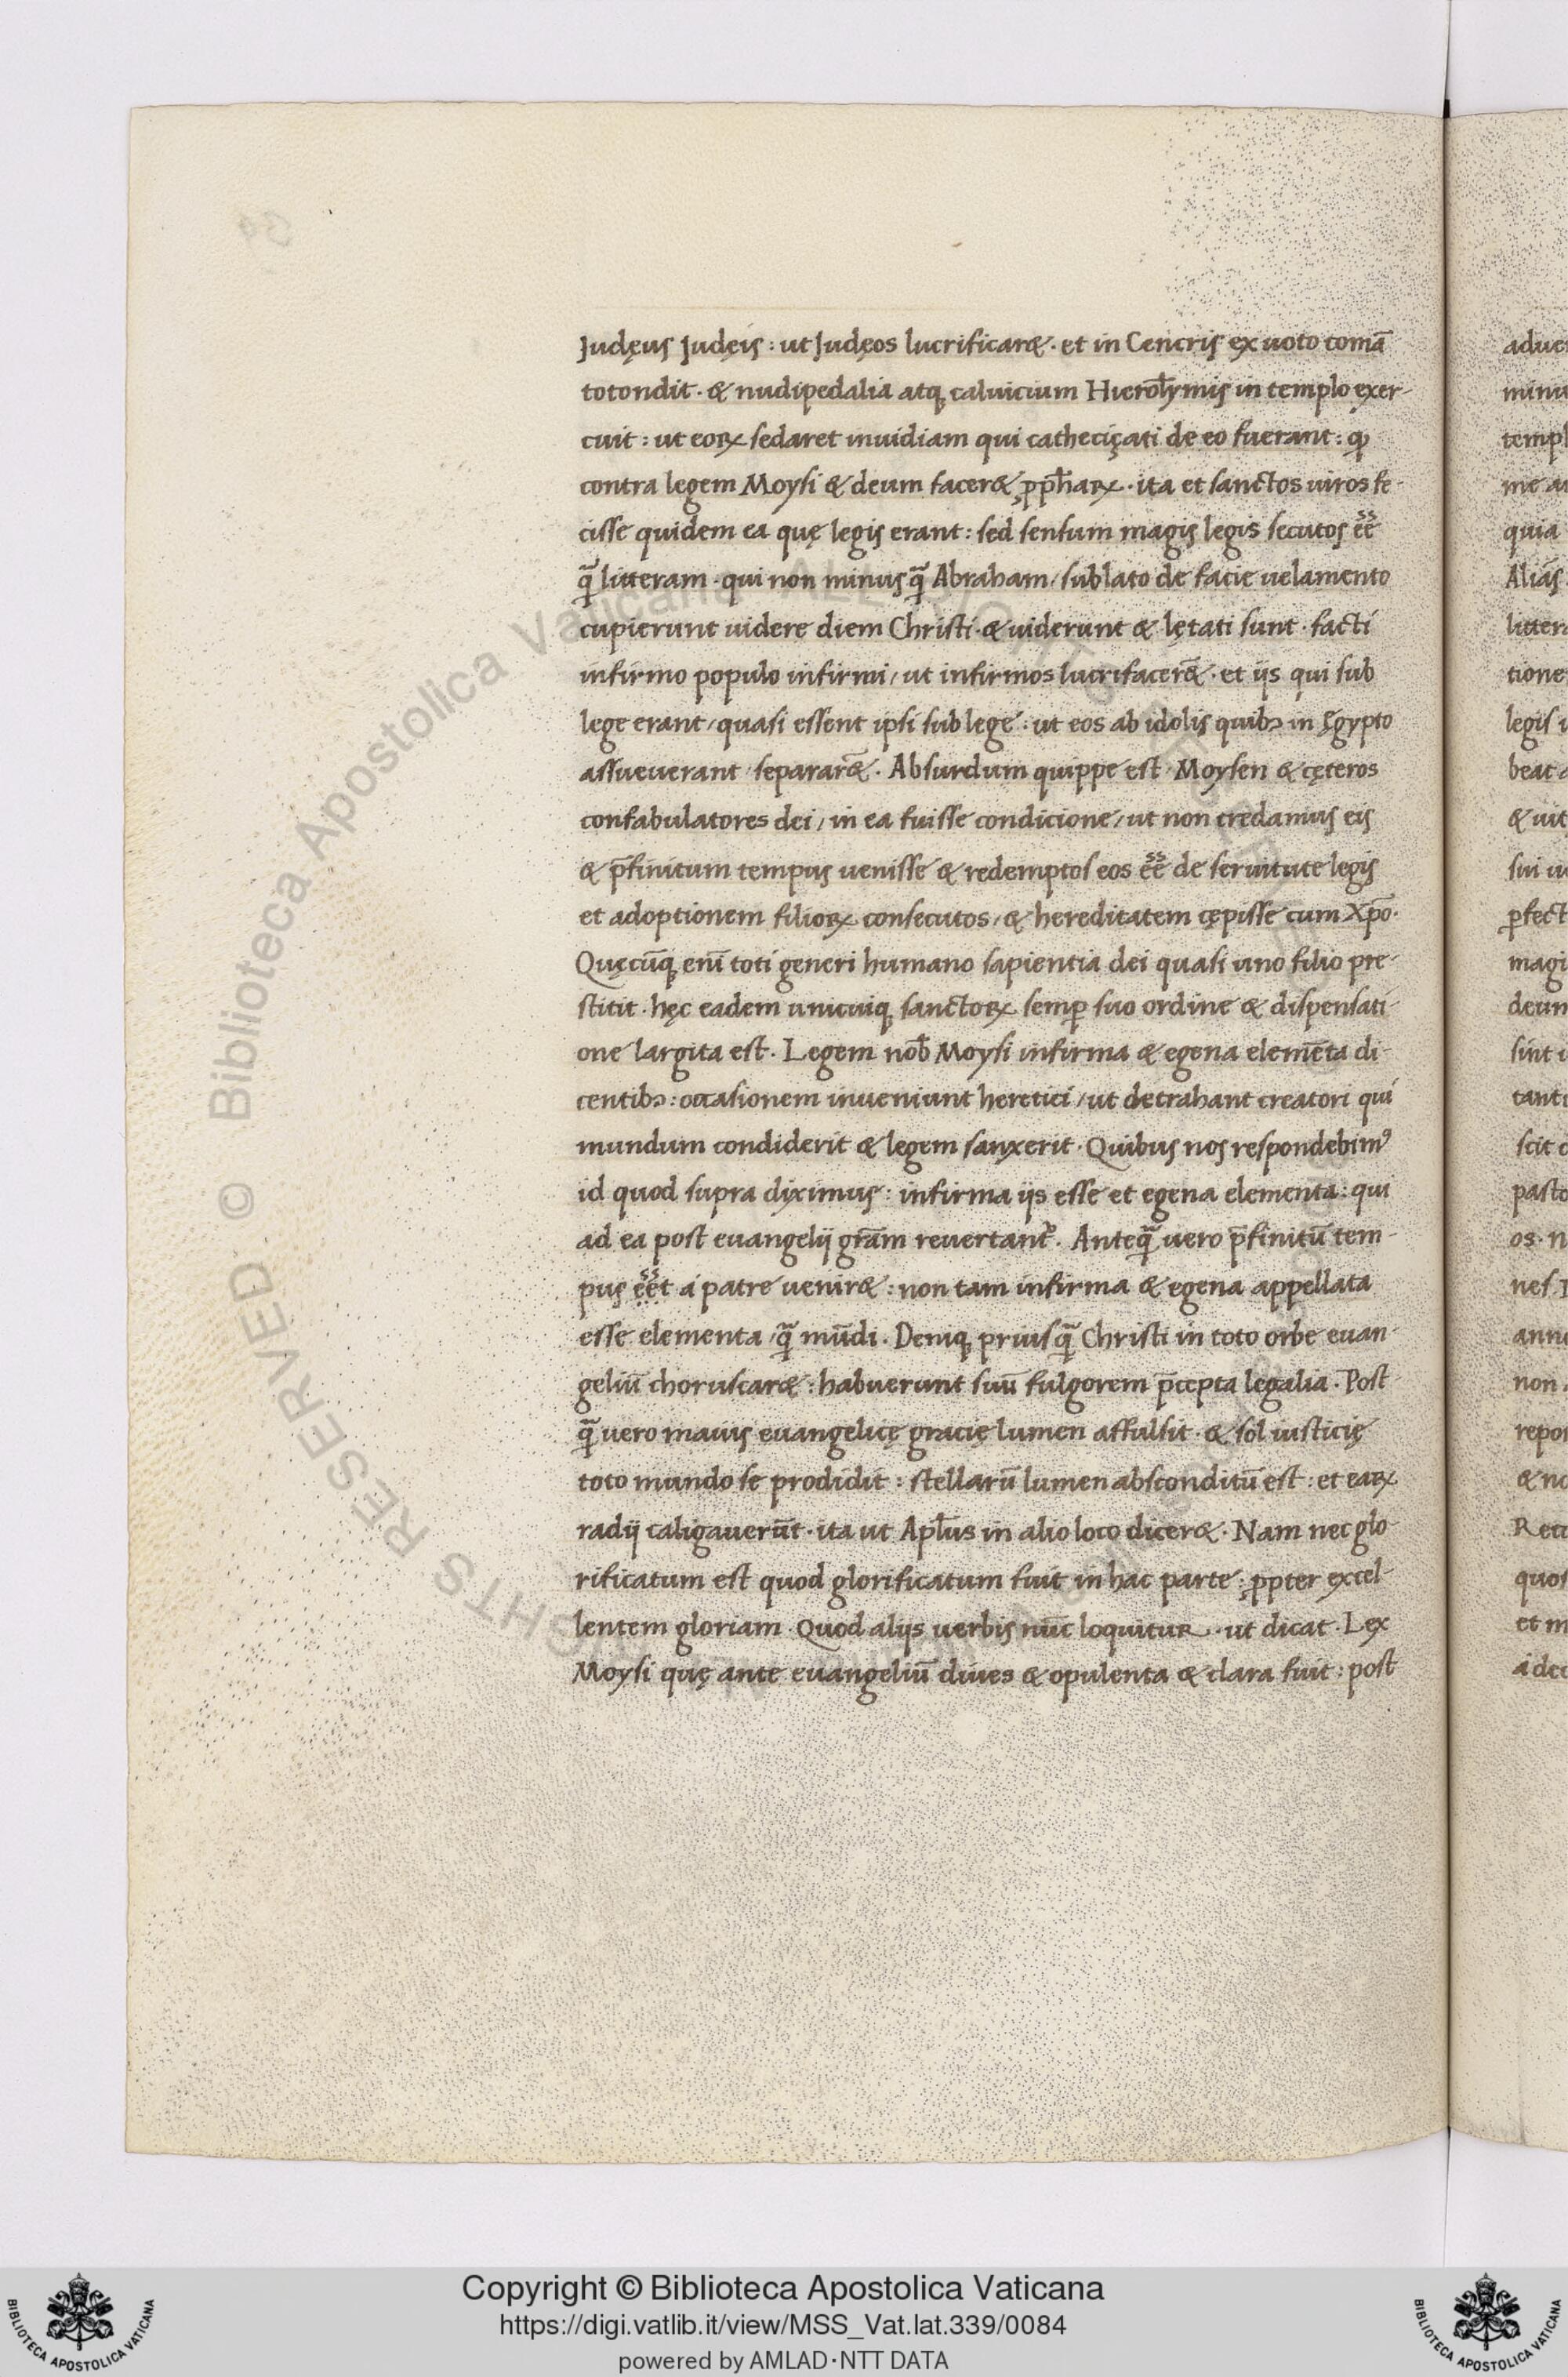 Judęus Judęis : ut Judęos lucrificar&. et in Cencris ex uoto comā
totondit. & nudipedalia atq; caluicium Hierosolymis in templo exer-
cuit : ut eoꝝ sedaret inuidiam qui catheciçati de eo fuerant : ꝙ
contra legem Moysi & deum facer& ꝓpħaꝝ. ita et sanctos uiros fe-
cisse quidem ea quę legis erant : sed sensum magis legis secutos ēē
q̄ litteram. qui non minus q̄ Abraham / sublato de facie uelamento
cupierunt uidere diem Christi. & uiderunt & lętati sunt. facti
infirmo populo infirmi / ut infirmos lucrifacer&. et ijs qui sub
lege erant / quasi essent ipsi sub lege : ut eos ab idolis quibꝫ in Ęgypto
assueuerant separar&. Absurdum quippe est. Moysen & cęteros
confabulatores dei / in ea fuisse condicione / ut non credamus eis
& p̄finitum tempus uenisse & redemptos eos ēē de seruitute legis
et adoptionem filioꝝ consecutos / & hereditatem cępisse cum Xp̄o.
Quęcūq; enī toti generi humano sapientia dei quasi uno filio pre-
stitit. hęc eadem unicuiq; sanctoꝝ semꝑ suo ordine & dispensati-
one largita est. Legem nob̄ Moysi infirma & egena elemēta di-
centibꝫ : occasionem inueniunt heretici / ut detrahant creatori qui
mundum condiderit & legem sanxerit. Quibus nos respondebimꝰ
id quod supra diximus : infirma ijs esse et egena elementa : qui
ad ea post euangelij grām reuertant᷑. Anteq̄ uero p̄finitū tem-
pus ēēt a patre uenir& : non tam infirma & egena appellata
esse elementa / q̄ mūdi. Deniq; priusq̄ Christi in toto orbe euan-
geliū choruscar& : habuerunt suū fulgorem p̄cepta legalia. Post
q̄ uero maius euangelicę gracię lumen affulsit. & sol iusticię
toto mundo se prodidit : stellarū lumen absconditū est : et eaꝝ
radij caligauerūt. ita ut Apl̄us in alio loco dicer&. Nam nec glo-
rificatum est quod glorificatum fuit in hac parte : ꝓpter excel-
lentem gloriam. Quod alijs uerbis nūc loquitur. ut dicat. Lex
Moysi quę ante euangeliū diues & opulenta & clara fuit : post
Copyright © Biblioteca Apostolica Vaticana
https://digi.vatlib.it/view/MSS_Vat.lat.339/0084
powered by AMLAD·NTT DATA